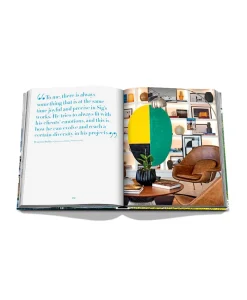 “To me, there is always
something that is at the same
time joyful and precise in Sig's
works. He tries to always fit with
his clients' emotions, and this is
how he can evolve and reach a
certain diversity in his projects.”